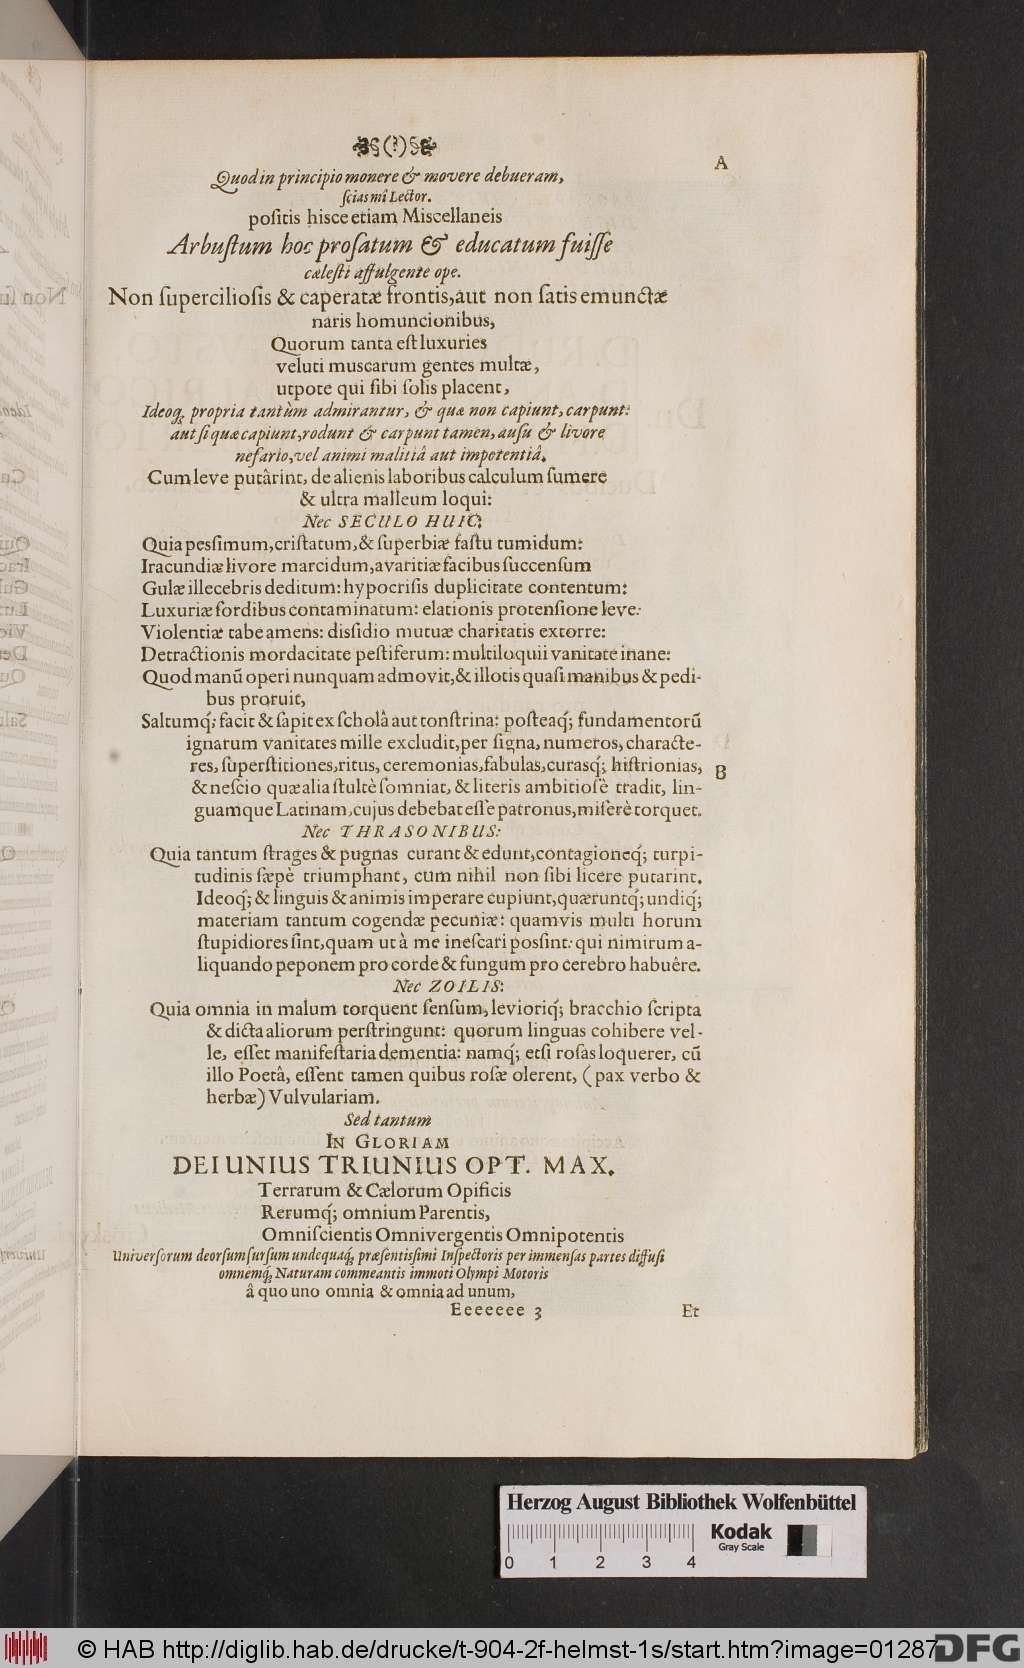 §(?)§
A
Quod in principio monere & movere debueram,
ſcias mî Lector.
poſitis hisce etiam Miscellaneis
Arbuſtum hoc proſatum & educatum fuiſſe
cæleſti affulgente ope.
Non ſuperciliosis & caperatæ frontis, aut non ſatis emunctæ
naris homuncionibus,
Quorum tanta eſt luxuries
veluti muscarum gentes multæ,
utpote qui ſibi ſolis placent,
Ideoq; propria tantùm admirantur, & quæ non capiunt, carpunt:
aut ſi quæ capiunt, rodunt & carpunt tamen, auſu & livore
nefario, vel animi malitiâ aut impotentiâ.
Cum leve putârint, de alienis laboribus calculum ſumere
& ultra malleum loqui:
Nec SECULO HUIC:
Quia pessimum, criſtatum, & ſuperbiæ faſtu tumidum:
Iracundiæ livore marcidum, avaritiæ facibus ſuccenſum
Gulæ illecebris deditum: hypocrisis duplicitate contentum:
Luxuriæ ſordibus contaminatum: elationis protenſione leve:
Violentiæ tabe amens: dissidio mutuæ charitatis extorre:
Detractionis mordacitate peſtiferum: multiloquii vanitate inane:
Quod manũ operi nunquam admovit, & illotis quaſi manibus & pedi-
bus proruit,
Saltumq; facit & ſapit ex ſcholâ aut tonſtrina: poſteaq; fundamentorũ
ignarum vanitates mille excludit, per ſigna, numeros, characte-
res, ſuperſtitiones, ritus, ceremonias, fabulas, curasq; hiſtrionias,
B
& neſcio quæ alia ſtultè ſomniat, & literis ambitioſè tradit, lin-
guamque Latinam, cujus debebat eſſe patronus, miſerè torquet.
Nec THRASONIBUS:
Quia tantum ſtrages & pugnas curant & edunt, contagioneq; turpi-
tudinis ſæpè triumphant, cum nihil non ſibi licere putarint.
Ideoq; & linguis & animis imperare cupiunt, quæruntq; undiq;
materiam tantum cogendæ pecuniæ: quamvis multi horum
ſtupidiores ſint, quam ut à me ineſcari posſint: qui nimirum a-
liquando peponem pro corde & fungum pro cerebro habuêre.
Nec ZOILIS:
Quia omnia in malum torquent ſenſum, levioriq; bracchio ſcripta
& dicta aliorum perſtringunt: quorum linguas cohibere vel-
le, eſſet manifeſtaria dementia: namq; etſi roſas loquerer, cũ
illo Poetâ, eſſent tamen quibus roſæ olerent, (pax verbo &
herbæ) Vulvulariam.
Sed tantum
IN GLORIAM
DEI UNIUS TRIUNIUS OPT. MAX.
Terrarum & Cælorum Opificis
Rerumq; omnium Parentis,
Omniſcientis Omnivergentis Omnipotentis
Universorum deorſum ſurſum undequaq; præſentiſſimi Inſpectoris per immenſas partes diffuſi
omnemq; Naturam commeantis immoti Olympi Motoris
â quo uno omnia & omnia ad unum,
Eeeeeee 3
Et
Herzog August Bibliothek Wolfenbüttel
Kodak
Gray Scale
0 1 2 3 4
© HAB http://diglib.hab.de/drucke/t-904-2f-helmst-1s/start.htm?image=01287
DFG